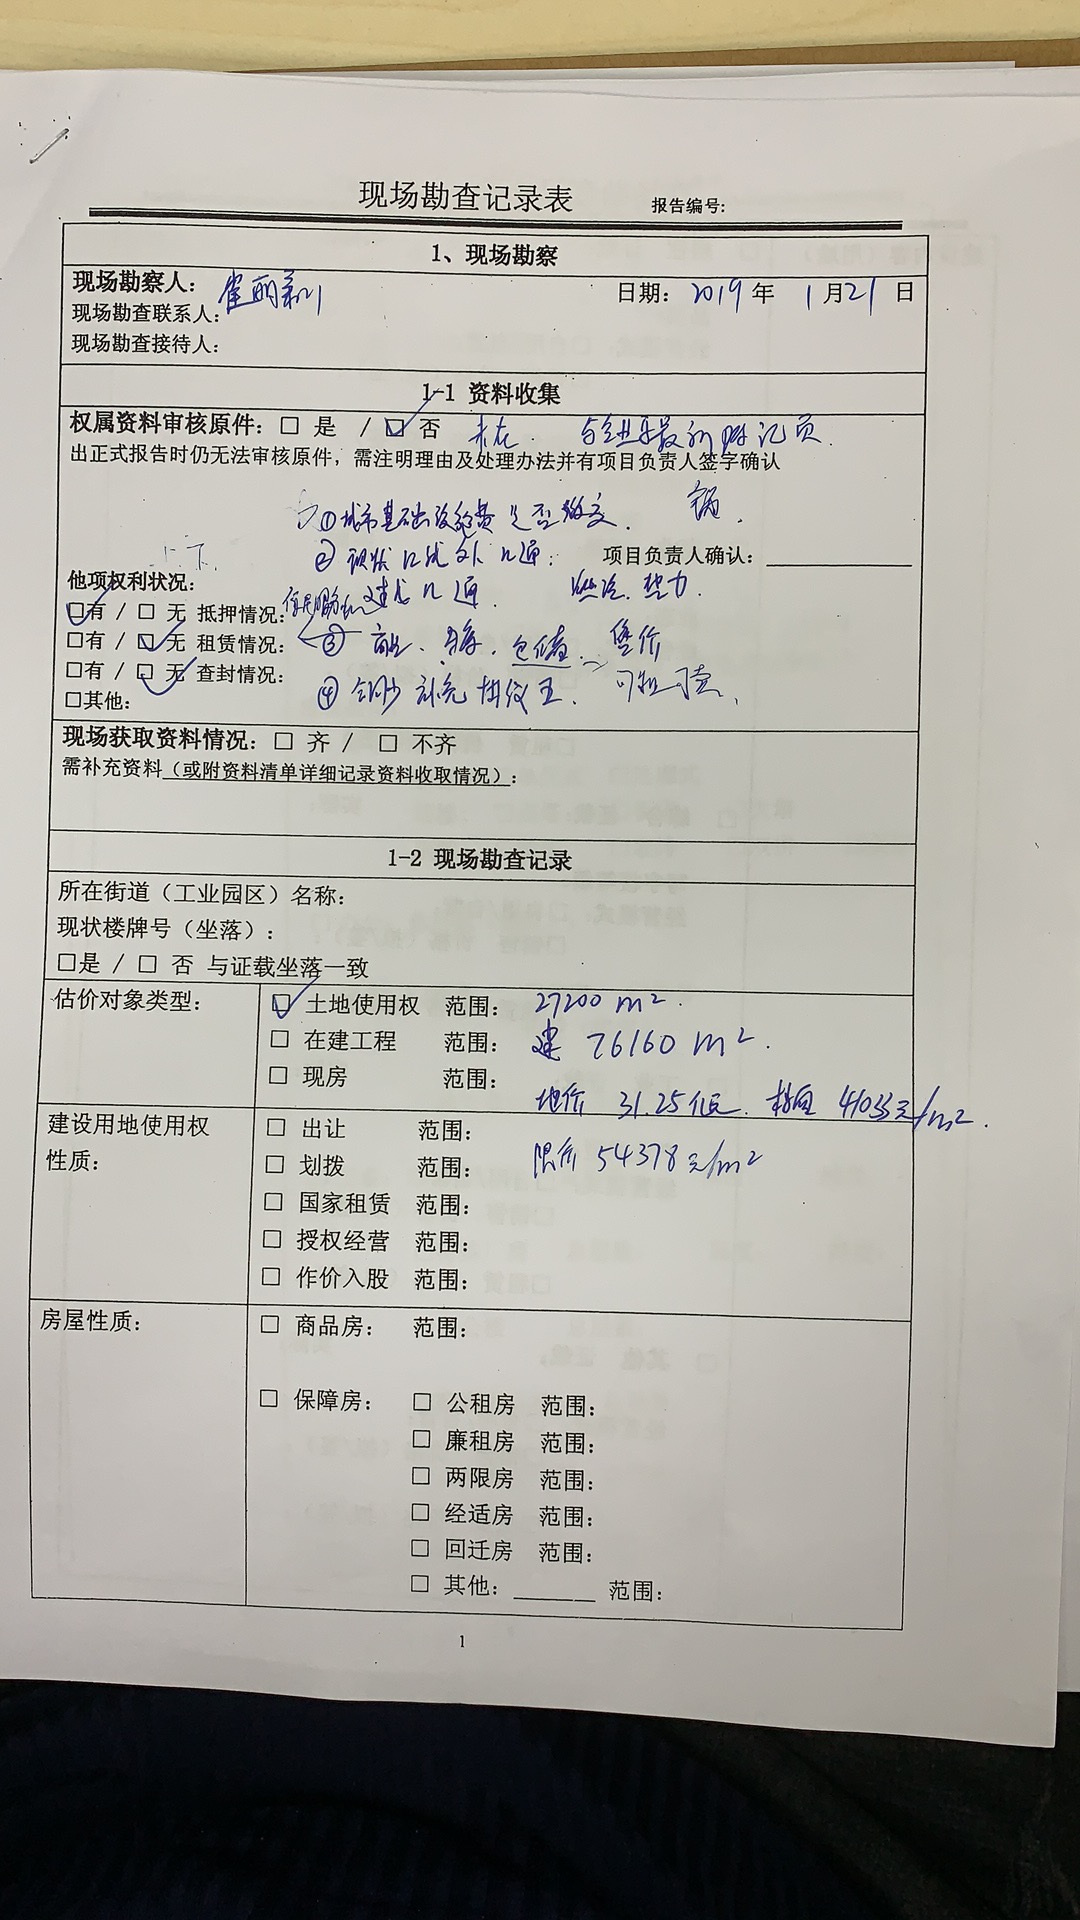 现场勘查记录表 报告编号:
1、现场勘察
现场勘察人: 日期: 2019 年 1 月 21 日
现场勘查联系人:
现场勘查接待人:
1-1 资料收集
权属资料审核原件: □ 是 / □ 否 附记页.
出正式报告时仍无法审核原件, 需注明理由及处理办法并有项目负责人签字确认
①城市基础设施费是否缴交.
②现状红线外几通; 项目负责人确认:
他项权利状况:
□有 / □ 无 抵押情况: 几通. 燃气. 热力
□有 / □ 无 租赁情况: ③ 仓储 售价
□有 / □ 无 查封情况: ④ 补充 可租可卖.
□其他:
现场获取资料情况: □ 齐 / □ 不齐
需补充资料(或附资料清单详细记录资料收取情况):
1-2 现场勘查记录
所在街道(工业园区)名称:
现状楼牌号(坐落):
□是 / □ 否 与证载坐落一致
估价对象类型: □ 土地使用权 范围: 27200 m².
□ 在建工程 范围: 建 76160 m².
□ 现房 范围:
地价 31.25亿元. 楼面 41033元/m².
建设用地使用权性质: □ 出让 范围:
□ 划拨 范围: 限价 54378元/m²
□ 国家租赁 范围:
□ 授权经营 范围:
□ 作价入股 范围:
房屋性质: □ 商品房: 范围:
□ 保障房: □ 公租房 范围:
□ 廉租房 范围:
□ 两限房 范围:
□ 经适房 范围:
□ 回迁房 范围:
□ 其他: 范围:
1